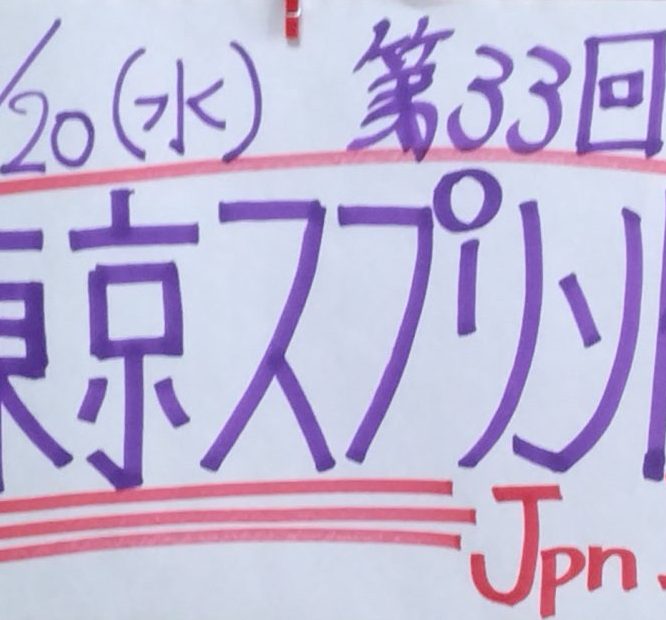 /20(水) 第33回
東京スプリント
Jpn